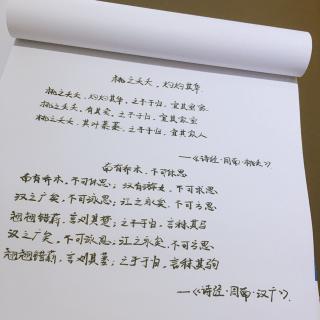 桃之夭夭，灼灼其华
桃之夭夭，灼灼其华，之子于归，宜其室家
桃之夭夭，有其实，之子于归，宜其家室
桃之夭夭，其叶蓁蓁，之子于归，宜其家人
——《诗经·周南·桃夭》
南有乔木，不可休思
南有乔木，不可休思；汉有游女，不可求思
汉之广矣，不可泳思；江之永矣，不可方思
翘翘错薪，言刈其楚；之子于归，言秣其马
汉之广矣，不可泳思；江之永矣，不可方思
翘翘错薪，言刈其蒌；之子于归，言秣其驹
——《诗经·周南·汉广》